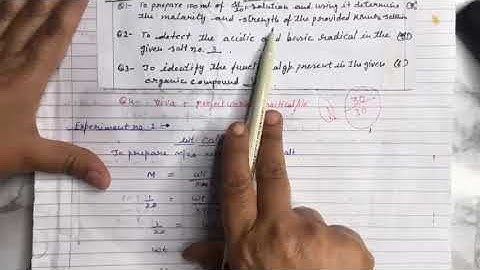 Q1- To prepare 100ml of M/20 solution and using it determine (8)
the molarity and strength of the provided KMnO4 soltion
Q2- To detect the acidic and basic radical in the (8)
given salt no. 3 .
Q3- To identify the function gp present in the given (6)
organic compound
Q4- Viva + Project work + practical file
30
30
Experiment no. 1:-
wt cal
To prepare M/20 salt
M = wt
1/20 = wt
1/20 =
wt